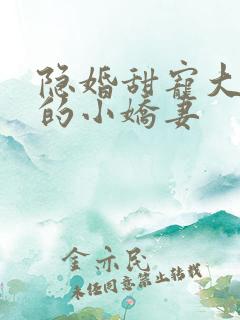 隐婚甜寵大
的小嬌妻
金亦民
未经同意禁止转载